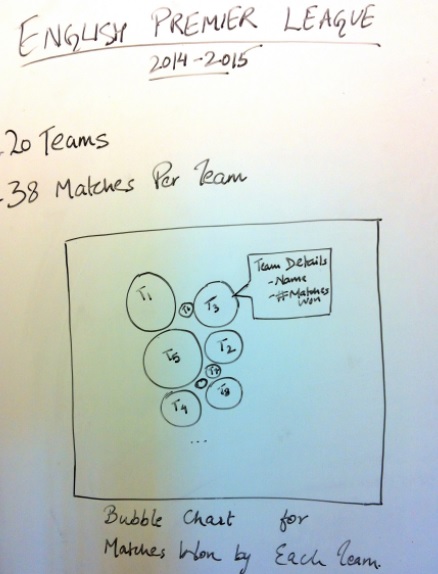 ENGLISH PREMIER LEAGUE
2014-2015
- 20 Teams
- 38 Matches Per Team
Team Details
- Name
- #Matches Won
T1
T3
T5
T2
T7
T4
T8
...
Bubble Chart for
Matches Won by Each Team.